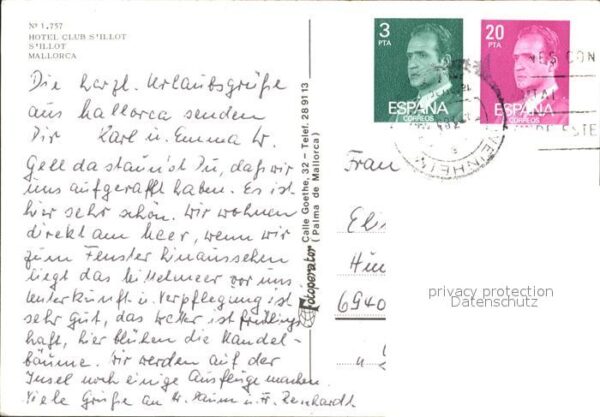 Nº 1.757
HOTEL CLUB S'ILLOT
S'ILLOT
MALLORCA
Die herzl. Urlaubsgrüße
aus Mallorca senden
Dir Karl u. Emma W.
Gell da staunst Du, daß wir
uns aufgerafft haben. Es ist
hier sehr schön. Wir wohnen
direkt am Meer, wenn wir
zum Fenster hinaussehen
liegt das Mittelmeer vor uns
Unterkunft u. Verpflegung ist
sehr gut, das Wetter ist frühlings
haft, hier blühen die Mandel-
bäume. Wir werden auf der
Insel noch einige Ausflüge machen.
Viele Grüße an u. Fr.
Fotoperator Calle Goethe, 32 - Telef. 28 91 13
(Palma de Mallorca)
3
PTA
ESPAÑA
CORREOS
20
PTA
ESPAÑA
CORREOS
WEINHEIM
Frau
6940
privacy protection
Datenschutz